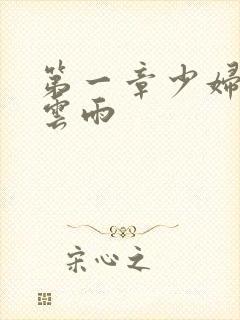 第一章少婦
雲雨
宋心之